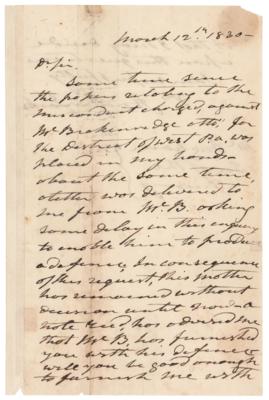 March 12th 1830-
Dr Sir
Some time since
the papers relating to the
misconduct charged, against
Mr Brakenridge atty for
the District of West Pa. was
placed in my hands
about the same time
a letter was delivered to
me from Mr B. asking
some delay in this enquiry
to enable him to produce
a defence, In consequence
of this request, this matter
has remained without
decision until now. A
note has advised me
that Mr B. has furnished
you with his defence
will you be good enough
to furnish me with